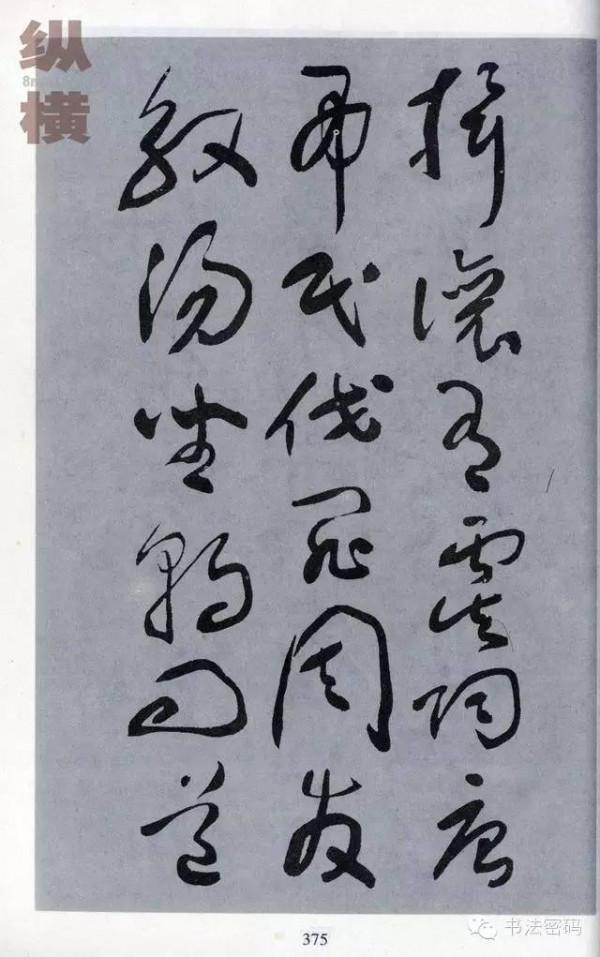 纵
横
揖讓有虞陶唐
弔民伐罪周發
殷湯坐朝問道
375
书法密码